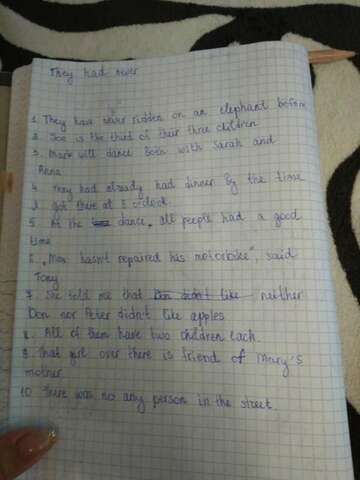 They had never
1. They have never ridden on an elephant before
2. Joe is the third of their three children
3. Mark will dance both with Sarah and
Anna
4. They had already had dinner by the time
I got there at 8 o'clock.
5. At the dance, all people had a good
time
6. „Max hasn't repaired his motorbike", said
Tony
7. She told me that Don didn't like neither
Don nor Peter didn't like apples
8. All of them have two children each.
9 That girl over there is friend of Mary's
mother
10 There was no any person in the street.